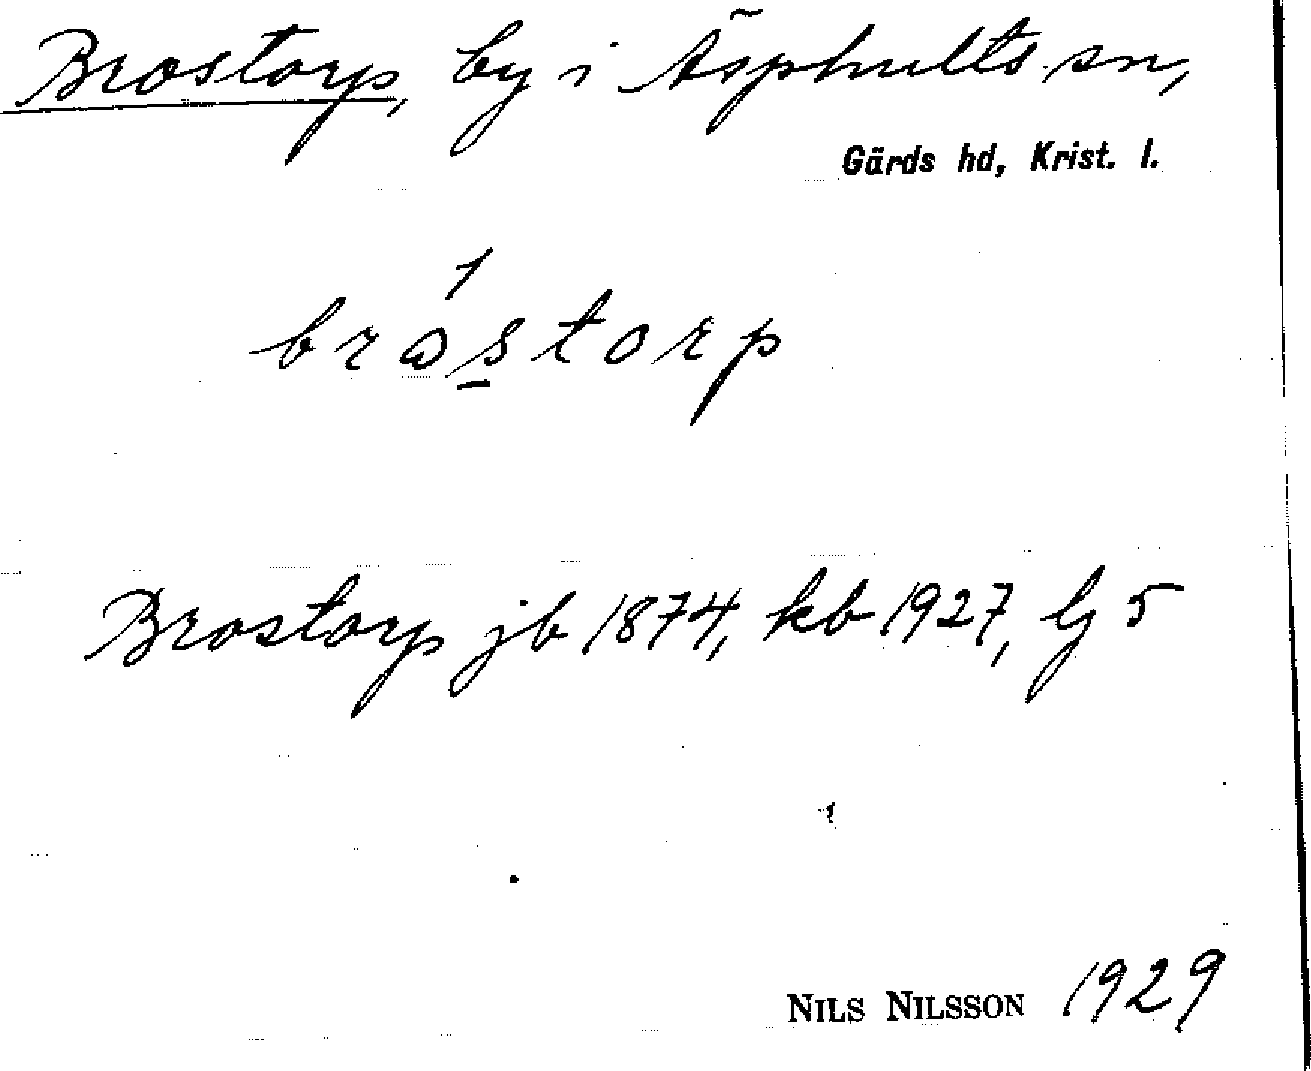 Brostorp, by i Äsphults sn,
Gärds hd, Krist. l.
bróstorp
Brostorp jb 1874, kb 1927, lj 5
NILS NILSSON 1929